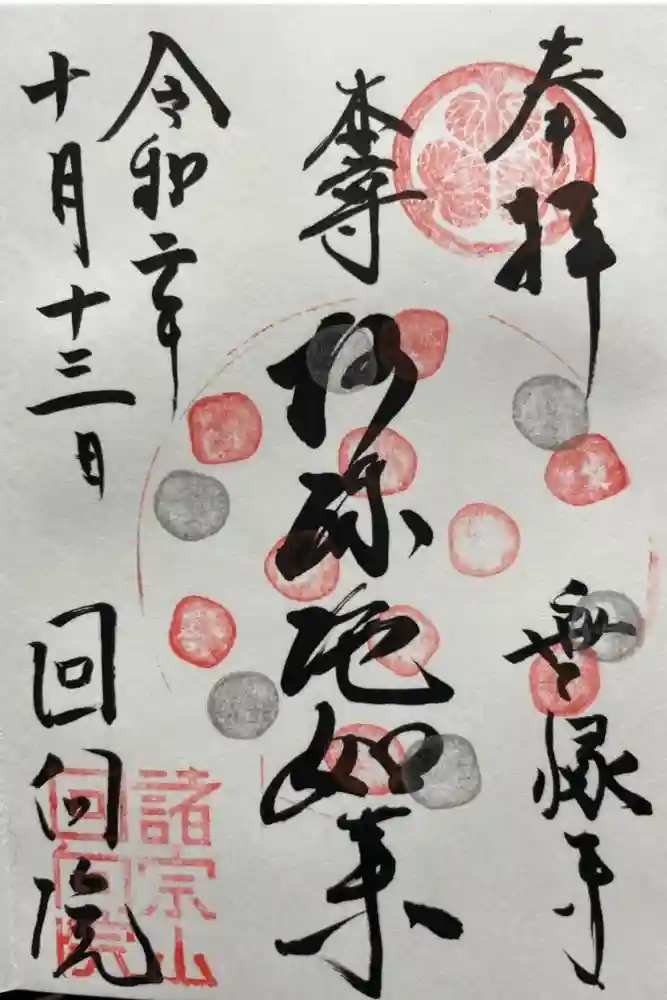 奉拝
無縁寺
本尊
阿弥陀如来
令和二年
十月十三日
回向院
諸宗山
回向院